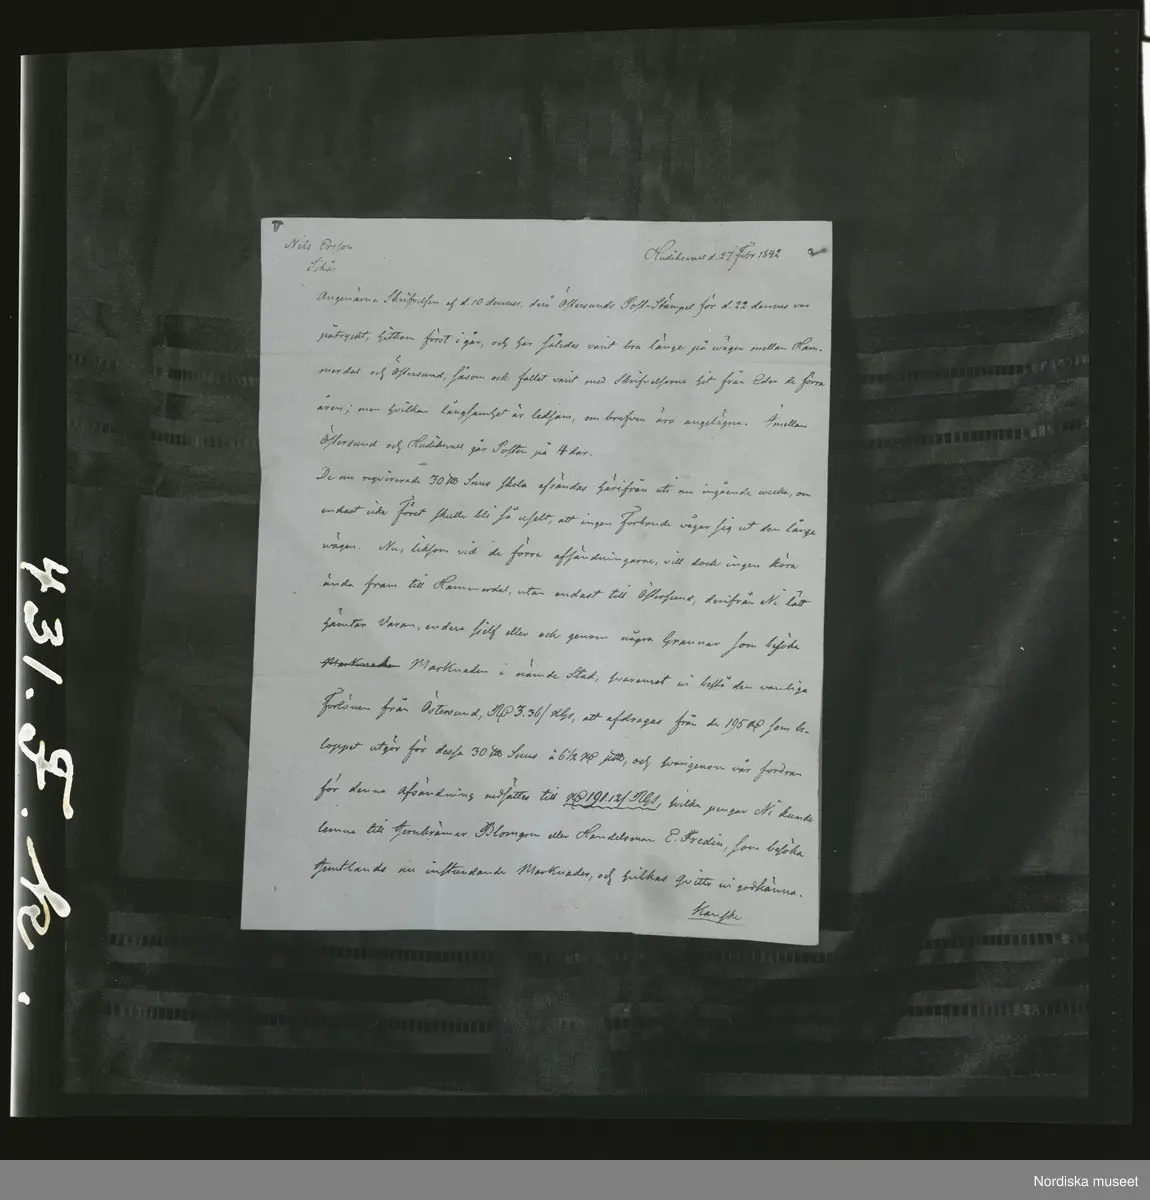 Nils Ersson
Hudiksvall d. 27 Febr 1842
Angenäma Skrifvelsen af d. 10 dennes, derå Östersunds Post-Stämpel för d. 22 dennes var
påtryckt, hitkom först i går, och har således varit bra länge på vägen mellan Ham-
merdal och Östersund, såsom ock fallet varit med Skrifvelserne hit från Eder de förra
åren; men hvilken långsamhet är ledsam, om brefven äro angelägna. Emellan
Östersund och Hudiksvall går Posten på 4 dar.
De nu reqvirerade 30 Snus skola afsändas härifrån uti nu ingående vecka, om
endast icke Föret skulle bli så uselt, att ingen Forbonde vågar sig ut den långa
vägen. Nu, liksom vid de förra afsändningarne, vill dock ingen köra
ända fram till Hammerdal, utan endast till Östersund, derifrån Ni lätt
hämtar Varan, endera sjelf eller och genom några Grannar som besöka
Marknade Marknaden i nämde Stad, hvaremot vi bestå den vanliga
Forlönen från Östersund, 3.36/ RGs, att afdragas från de 195 som be-
loppet utgör för dessa 30 Snus à 6 1/2, och hvarigenom vår fordran
för denna Afsändning nedsättes till 191.12/ RGs, hvilka pengar Ni kunde
lemna till Jernkrämar Blomgren eller Handelsman E. Fredin, som besöka
Jemtlands nu instundande Marknader, och hvilkas Qvitto vi godkänna.
431. F. K.
Nordiska museet